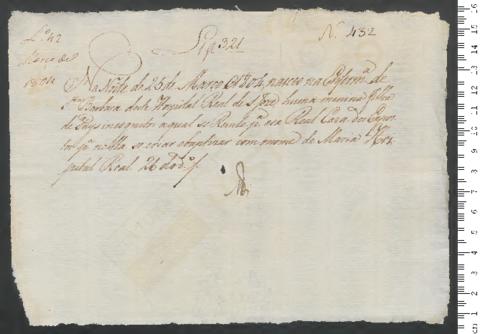 L.º 42
Março de
1804
Nº 321
N. 432
Na Noite de 25 de Março de 1804, nasceo na Enferm.ª de
S.ta Barbara deste Hospital Real de S. José, huma menina filha
de Pays incognitos a qual se Remete p.ª essa Real Caza dos Expos
tos p.ª nella se criar e baptizar com o nome de Maria. Hos
pital Real 26 do d.º